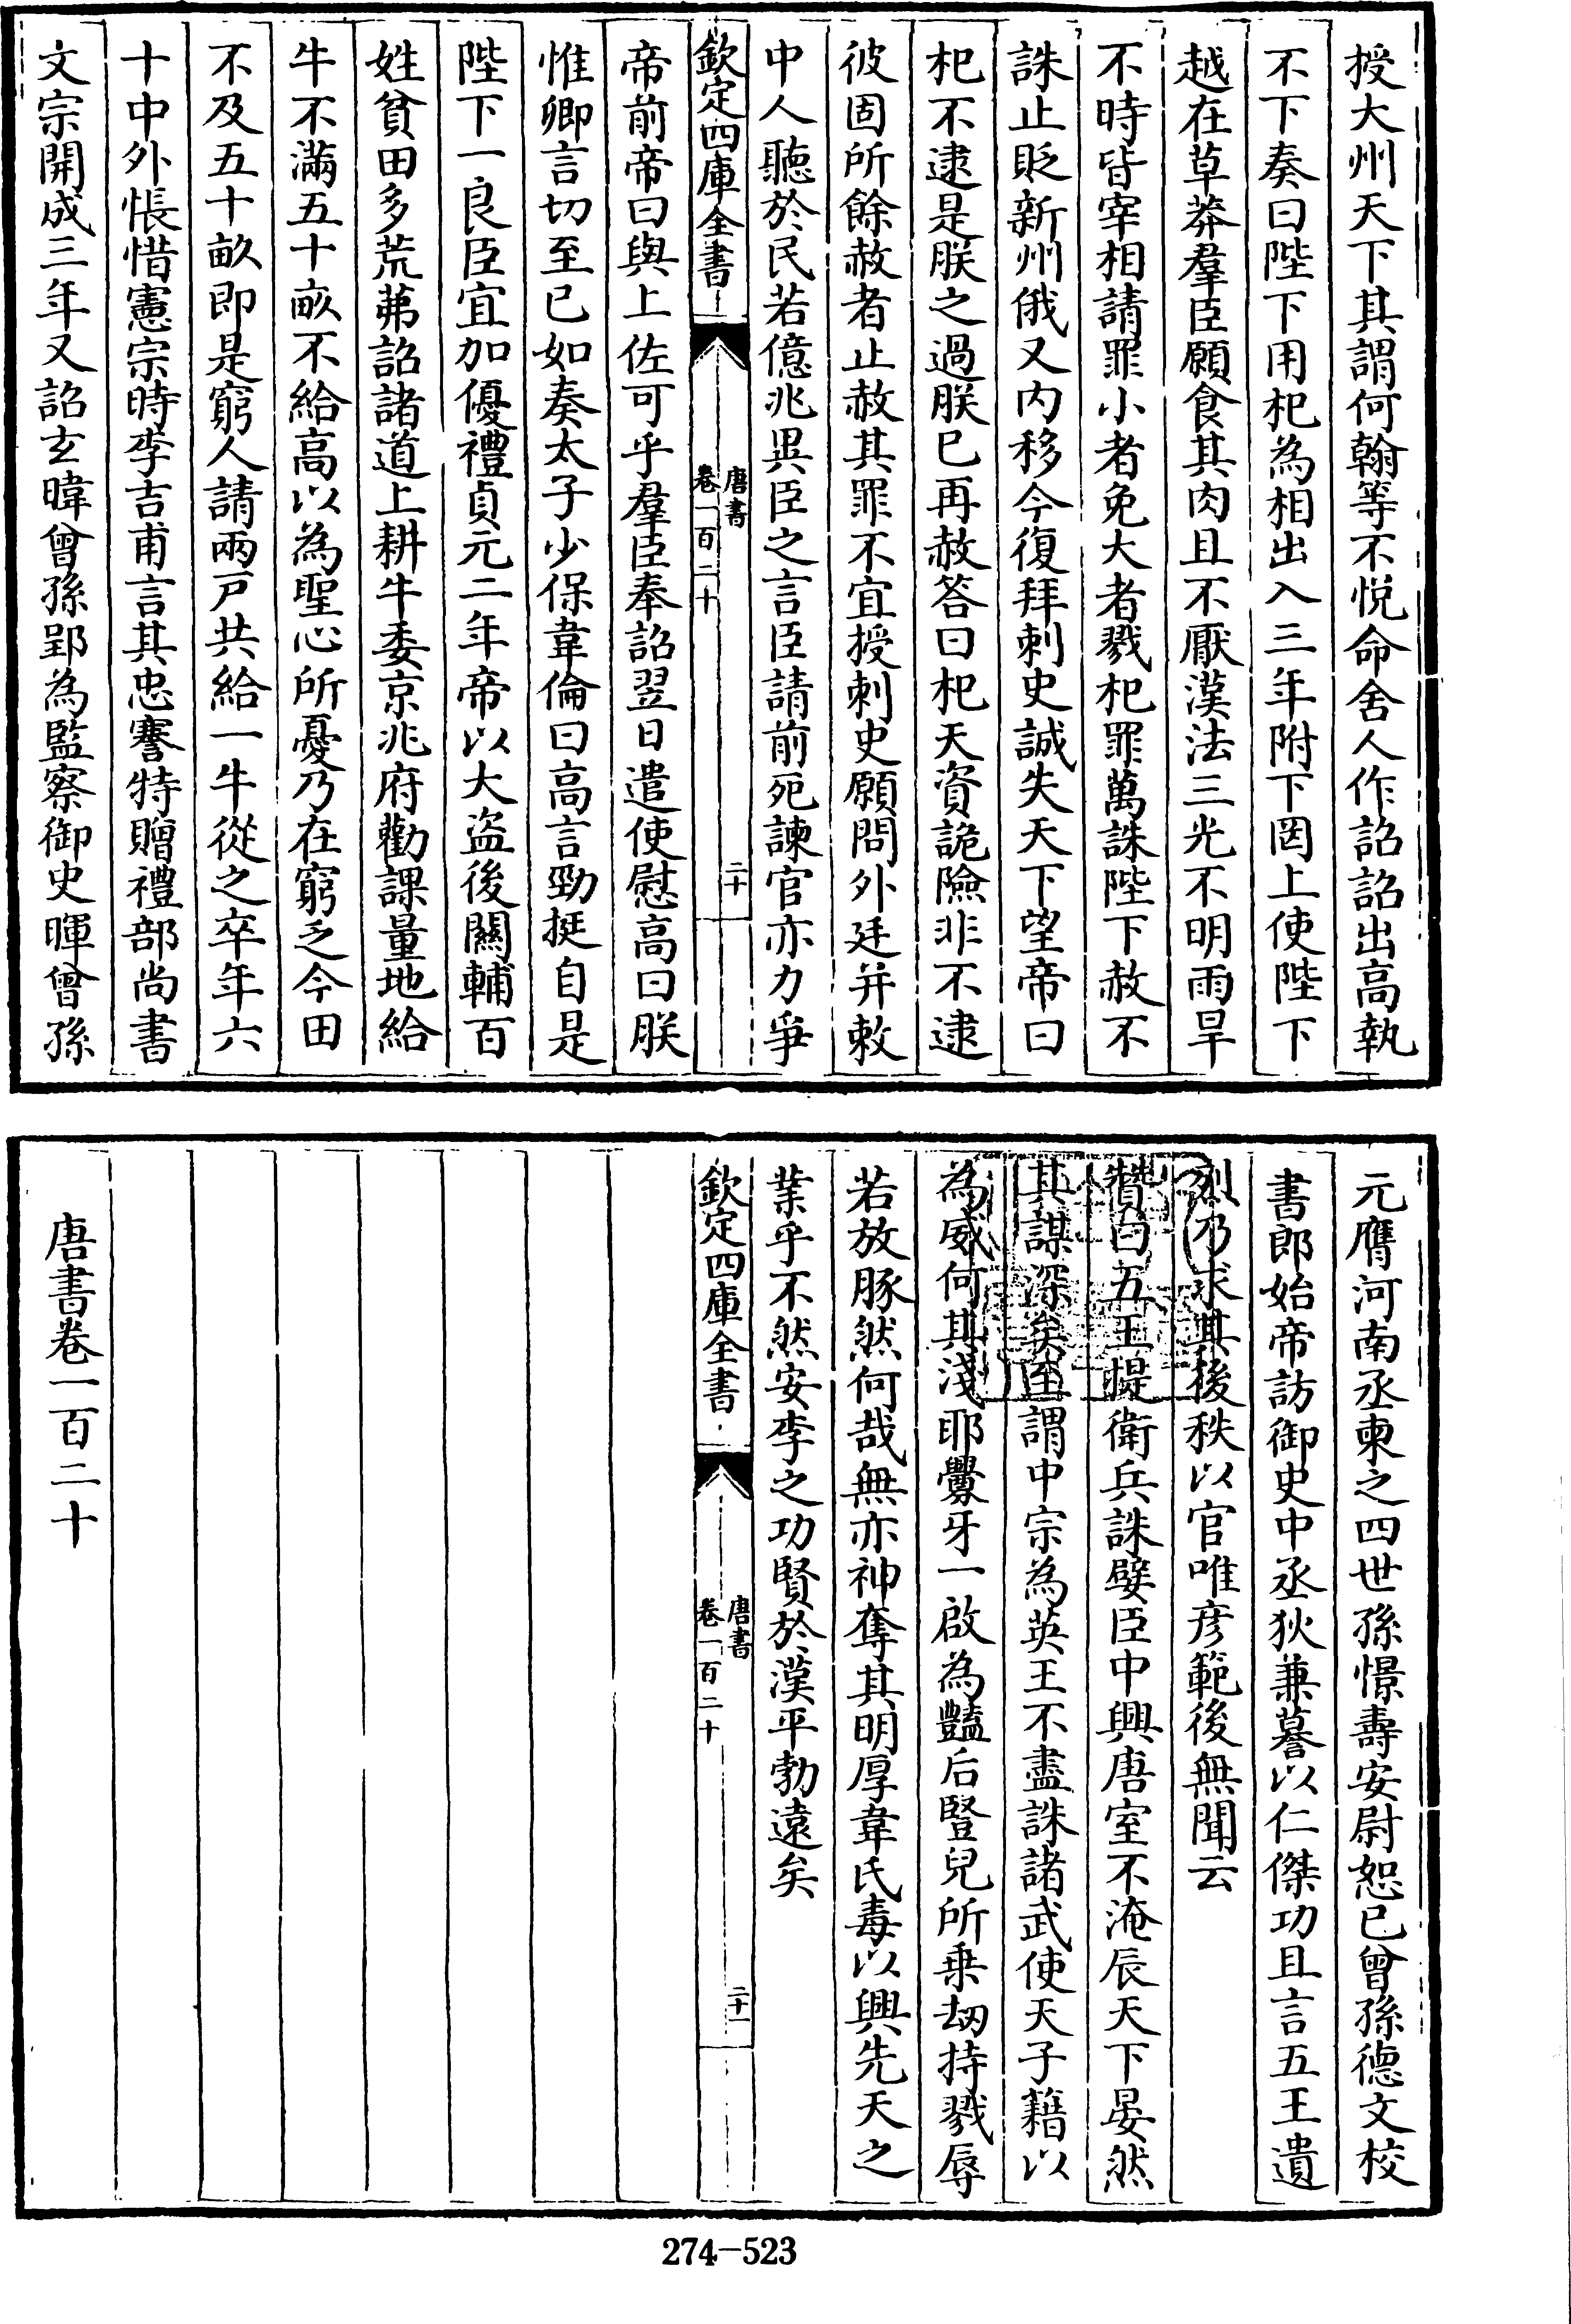 授大州天下其謂何翰等不悅命舍人作詔詔出高執
不下奏曰陛下用杞為相出入三年附下罔上使陛下
越在草莽羣臣願食其肉且不厭漢法三光不明雨旱
不時皆宰相請罪小者免大者戮杞罪萬誅陛下赦不
誅止貶新州俄又内移今復拜刺史誠失天下望帝曰
杞不逮是朕之過朕已再赦答曰杞天資詭險非不逮
彼固所餘赦者止赦其罪不宜授刺史願問外廷并敕
中人聽於民若億兆異臣之言臣請前死諫官亦力爭
欽定四庫全書
唐書
卷一百二十
二十
帝前帝曰與上佐可乎羣臣奉詔翌日遣使慰高曰朕
惟卿言切至已如奏太子少保韋倫曰高言勁挺自是
陛下一良臣宜加優禮貞元二年帝以大盜後關輔百
姓貧田多荒茀詔諸道上耕牛委京兆府勸課量地給
牛不滿五十畝不給高以為聖心所憂乃在窮乏今田
不及五十畝即是窮人請兩戸共給一牛從之卒年六
十中外悵惜憲宗時李吉甫言其忠謇特贈禮部尚書
文宗開成三年又詔玄暐曾孫郢為監察御史暉曾孫
元膺河南丞柬之四世孫憬壽安尉恕已曾孫德文校
書郎始帝訪御史中丞狄兼謩以仁傑功且言五王遺
烈乃求其後秩以官唯彥範後無聞云
贊曰五王提衛兵誅嬖臣中興唐室不淹辰天下晏然
其謀深矣至謂中宗為英王不盡誅諸武使天子藉以
為威何其淺耶釁牙一啟為豔后豎兒所乗刼持戮辱
若放豚然何哉無亦神奪其明厚韋氏毒以興先天之
業乎不然安李之功賢於漢平勃遠矣
欽定四庫全書
唐書
卷一百二十
二十一
唐書卷一百二十
274-523